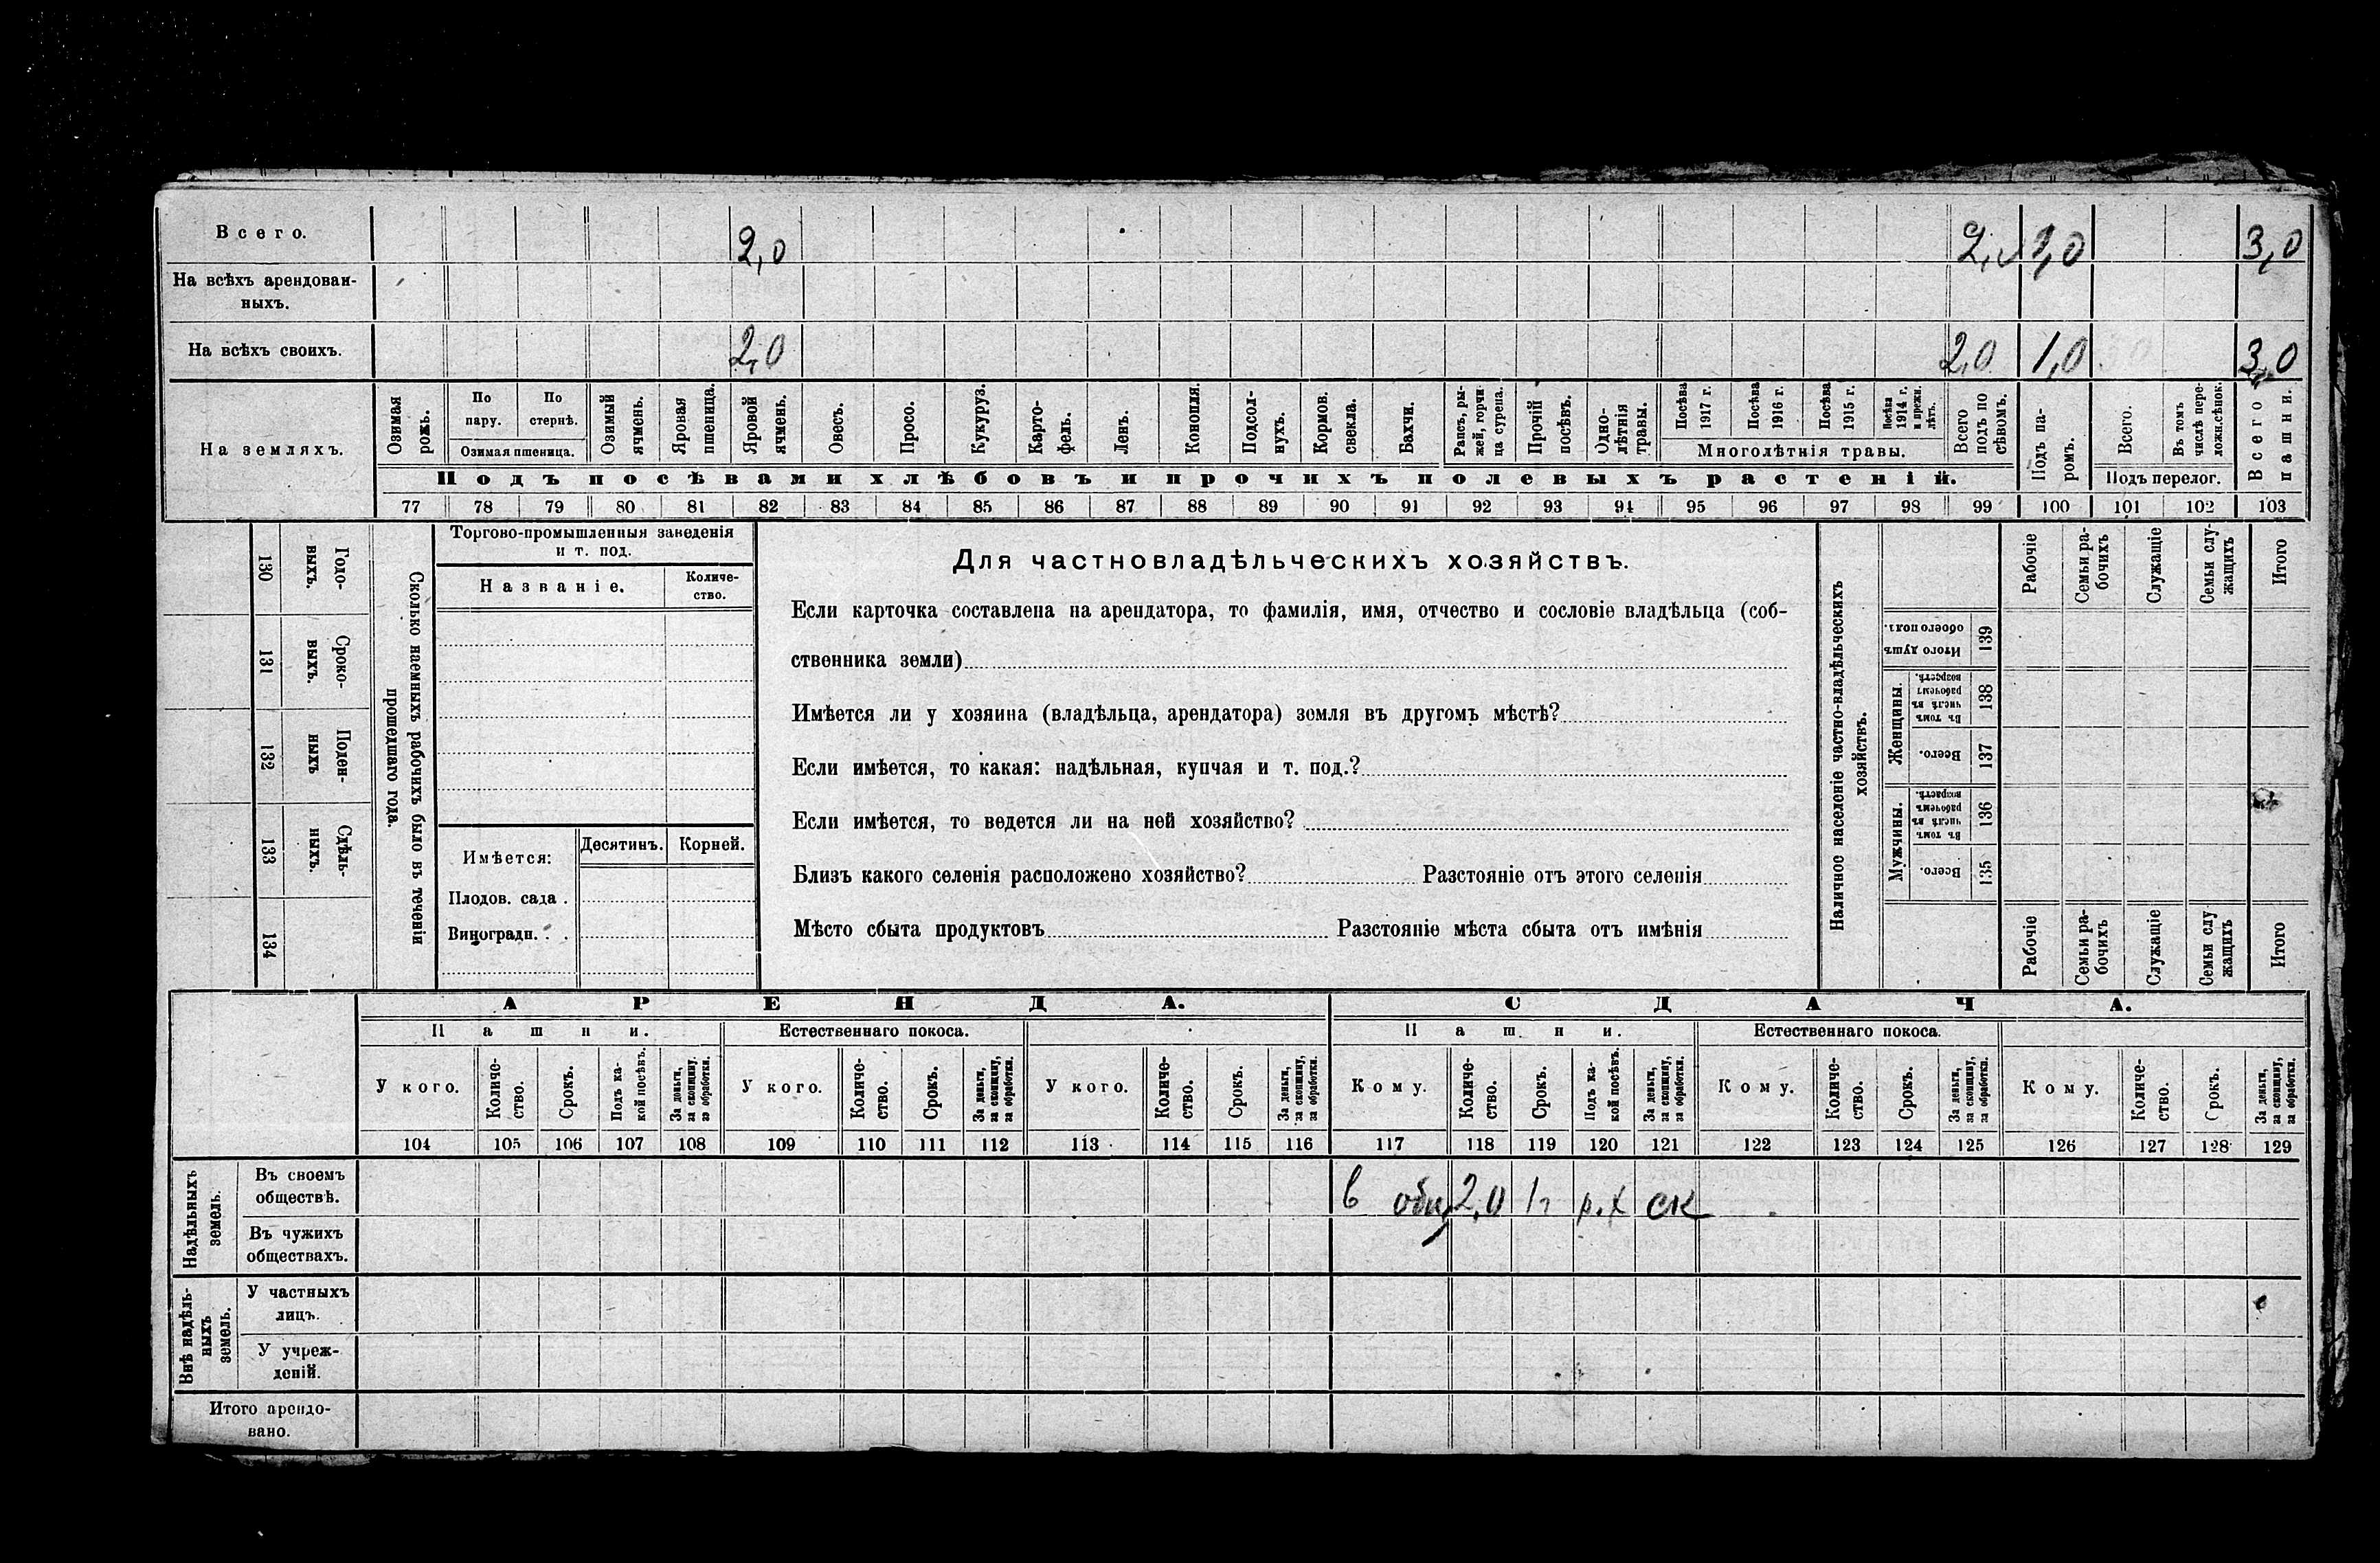 Всего. 2,0 2,0 1,0 3,0
На всѣхъ арендован-
ныхъ.
На всѣхъ своихъ. 2,0 2,0 1,0 3,0
На земляхъ.
Озимая рожь.
По пару.
По стернѣ.
Озимая пшеница.
Озимый ячмень.
Яровая пшеница.
Яровой ячмень.
Овесъ.
Просо.
Кукуруз.
Карто-
фель.
Ленъ.
Конопля.
Подсол-
нухъ.
Кормов. свекла.
Бахчи.
Рапсъ, ры-
жей, горчи
ца сурепа.
Прочій посѣвъ.
Одно-
лѣтнія травы.
Посѣва 1917 г.
Посѣва 1916 г.
Посѣва 1915 г.
Посѣва 1914 г. и прежн. лѣтъ.
Многолѣтнія травы.
Всего подъ по сѣвомъ.
Подъ па-
ромъ.
Всего.
Въ томъ числѣ пере-
ложн.сѣнок.
Подъ перелог.
Всего пашни.
Подъ посѣвами хлѣбовъ и прочихъ полевыхъ растеній.
77 78 79 80 81 82 83 84 85 86 87 88 89 90 91 92 93 94 95 96 97 98 99 100 101 102 103
130 Годо-
выхъ.
131 Сроко-
выхъ.
132 Поден-
ныхъ
133 Сдѣль-
ныхъ.
134
Сколько наемныхъ рабочихъ было въ теченіи
прошедшаго года.
Торгово-промышленныя заведенія
и т. под.
Названіе.
Количе-
ство.
Имѣется:
Десятинъ. Корней.
Плодов. сада .
Виноградн. .
Для частновладѣльческихъ хозяйствъ.
Если карточка составлена на арендатора, то фамилія, имя, отчество и сословіе владѣльца (соб-
ственника земли)
Имѣется ли у хозяина (владѣльца, арендатора) земля въ другомъ мѣстѣ?
Если имѣется, то какая: надѣльная, купчая и т. под.?
Если имѣется, то ведется ли на ней хозяйство?
Близъ какого селенія расположено хозяйство? Разстояніе отъ этого селенія
Мѣсто сбыта продуктовъ Разстояніе мѣста сбыта отъ имѣнія
Наличное населеніе частно-владѣльческихъ
хозяйствъ.
Рабочіе
Семьи ра-
бочихъ
Служащіе
Семьи слу-
жащихъ
Итого
Итого душъ обоего пола. 139
Женщины.
Въ томъ числѣ въ рабочемъ возрастѣ. 138
Всего. 137
Мужчины.
Въ томъ числѣ въ рабочемъ возрастѣ. 136
Всего. 135
Рабочіе
Семьи ра-
бочихъ
Служащіе
Семьи слу
жащихъ
Итого
АРЕНДА. СДАЧА.
Пашни. Естественнаго покоса. Пашни. Естественнаго покоса.
У кого.
Количе-
ство.
Срокъ.
Подъ ка-
кой посѣвъ.
За деньги, за скопщину, за обработки.
У кого.
Количе-
ство.
Срокъ.
За деньги, за скопщину, за обработки.
У кого.
Количе-
ство.
Срокъ.
За деньги, за скопщину, за обработки.
Кому.
Количе-
ство.
Срокъ.
Подъ ка-
кой посѣвъ.
За деньги, за скопщину, за обработки.
Кому.
Количе-
ство.
Срокъ.
За деньги, за скопщину, за обработки.
Кому.
Количе-
ство.
Срокъ.
За деньги, за скопщину, за обработки.
104 105 106 107 108 109 110 111 112 113 114 115 116 117 118 119 120 121 122 123 124 125 126 127 128 129
Надѣльныхъ
земель.
Въ своемъ
обществѣ.
в общ 2,0 1г р.х ск
Въ чужихъ
обществахъ.
Внѣ надѣль-
ныхъ
земель.
У частныхъ
лицъ.
У учреж-
деній.
Итого арендо-
вано.